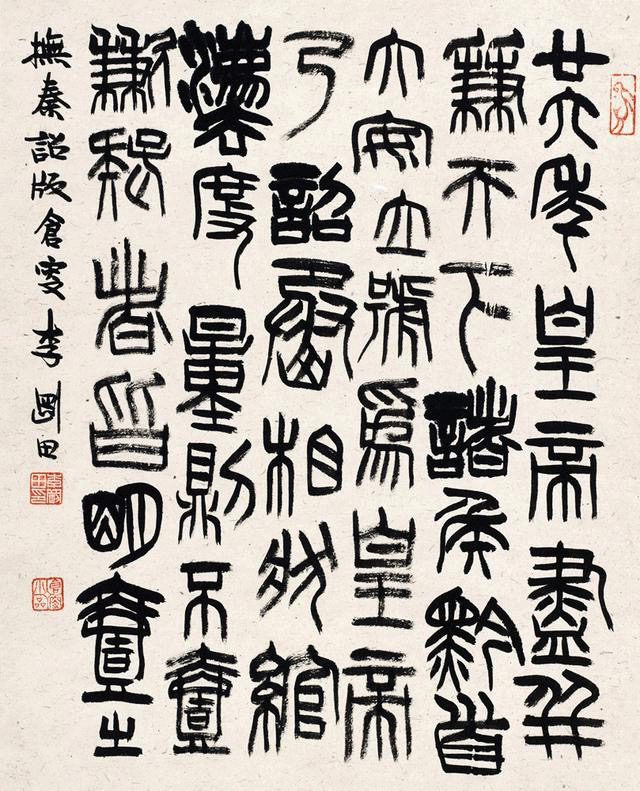 廿六年皇帝盡并
兼天下諸侯黔首
大安立號為皇帝
乃詔丞相狀綰
灋度量則不壹
歉疑者皆明壹之
撫秦詔版倉叟李剛田